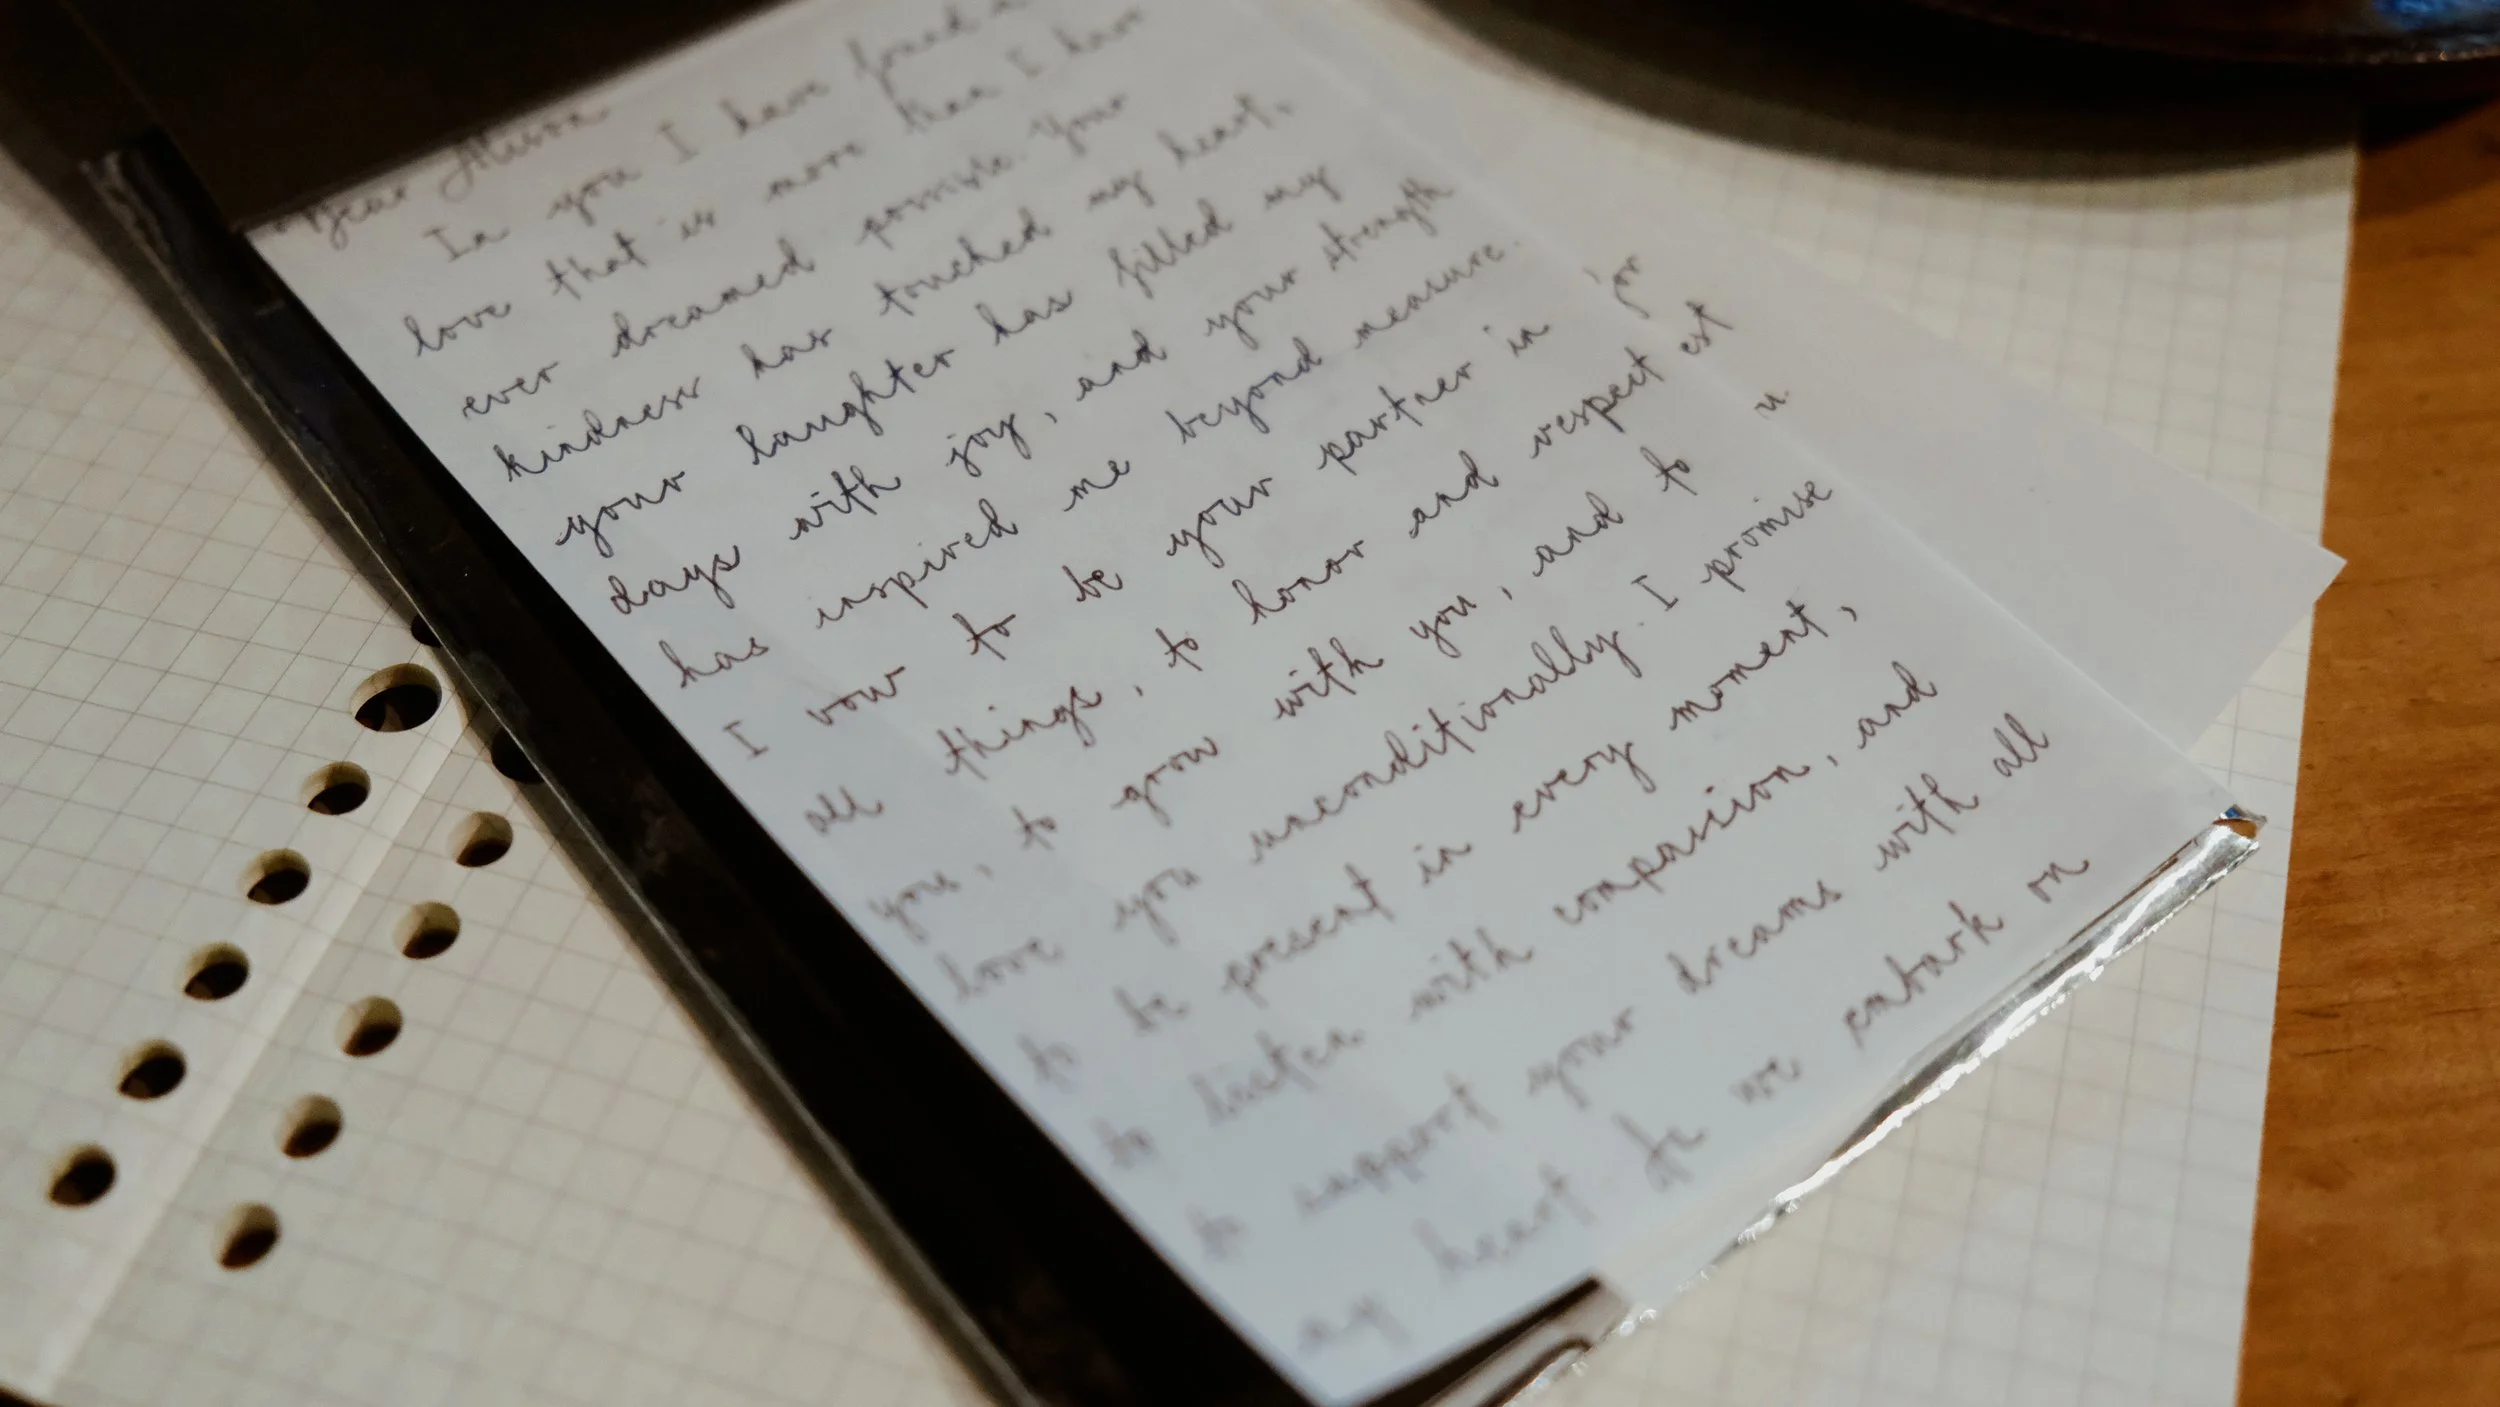 Dear Alison
In you I have found a
love that is more than I have
ever dreamed possible. Your
kindness has touched my heart,
your laughter has filled my
days with joy, and your strength
has inspired me beyond measure.
I vow to be your partner in
all things, to honor and respect
you, to grow with you, and to
love you unconditionally. I promise
to be present in every moment,
to listen with compassion, and
to support your dreams with all
my heart. As we embark on